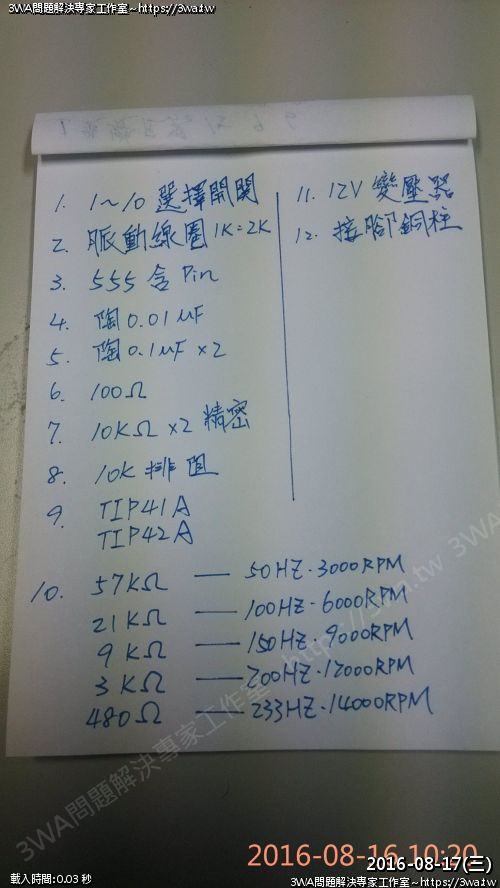 3WA問題解決專家工作室~https://3wa.tw
1. 1~10 選擇開関
2. 脈動線圈 1K=2K
3. 555 含 Pin
4. 陶 0.01 μF
5. 陶 0.1 μF ×2
6. 100Ω
7. 10KΩ ×2 精密
8. 10K 排阻
9. TIP41A
TIP42A
10. 57KΩ — 50HZ·3000RPM
21KΩ — 100HZ·6000RPM
9KΩ — 150HZ·9000RPM
3KΩ — 200HZ·12000RPM
480Ω — 233HZ·14000RPM
11. 12V 變壓器
12. 接腳銅柱
3WA問題解決專家工作室~https://3wa.tw 3WA
2016-08-16 10:20
2016-08-17(三)
載入時間:0.03 秒
3WA問題解決專家工作室~https://3wa.tw